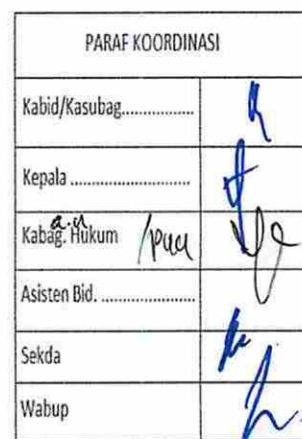 PARAF KOORDINASI
Kabid/Kasubag...............
Kepala ........................
a.n
Kabag. Hukum
Asisten Bid. .....................
Sekda
Wabup